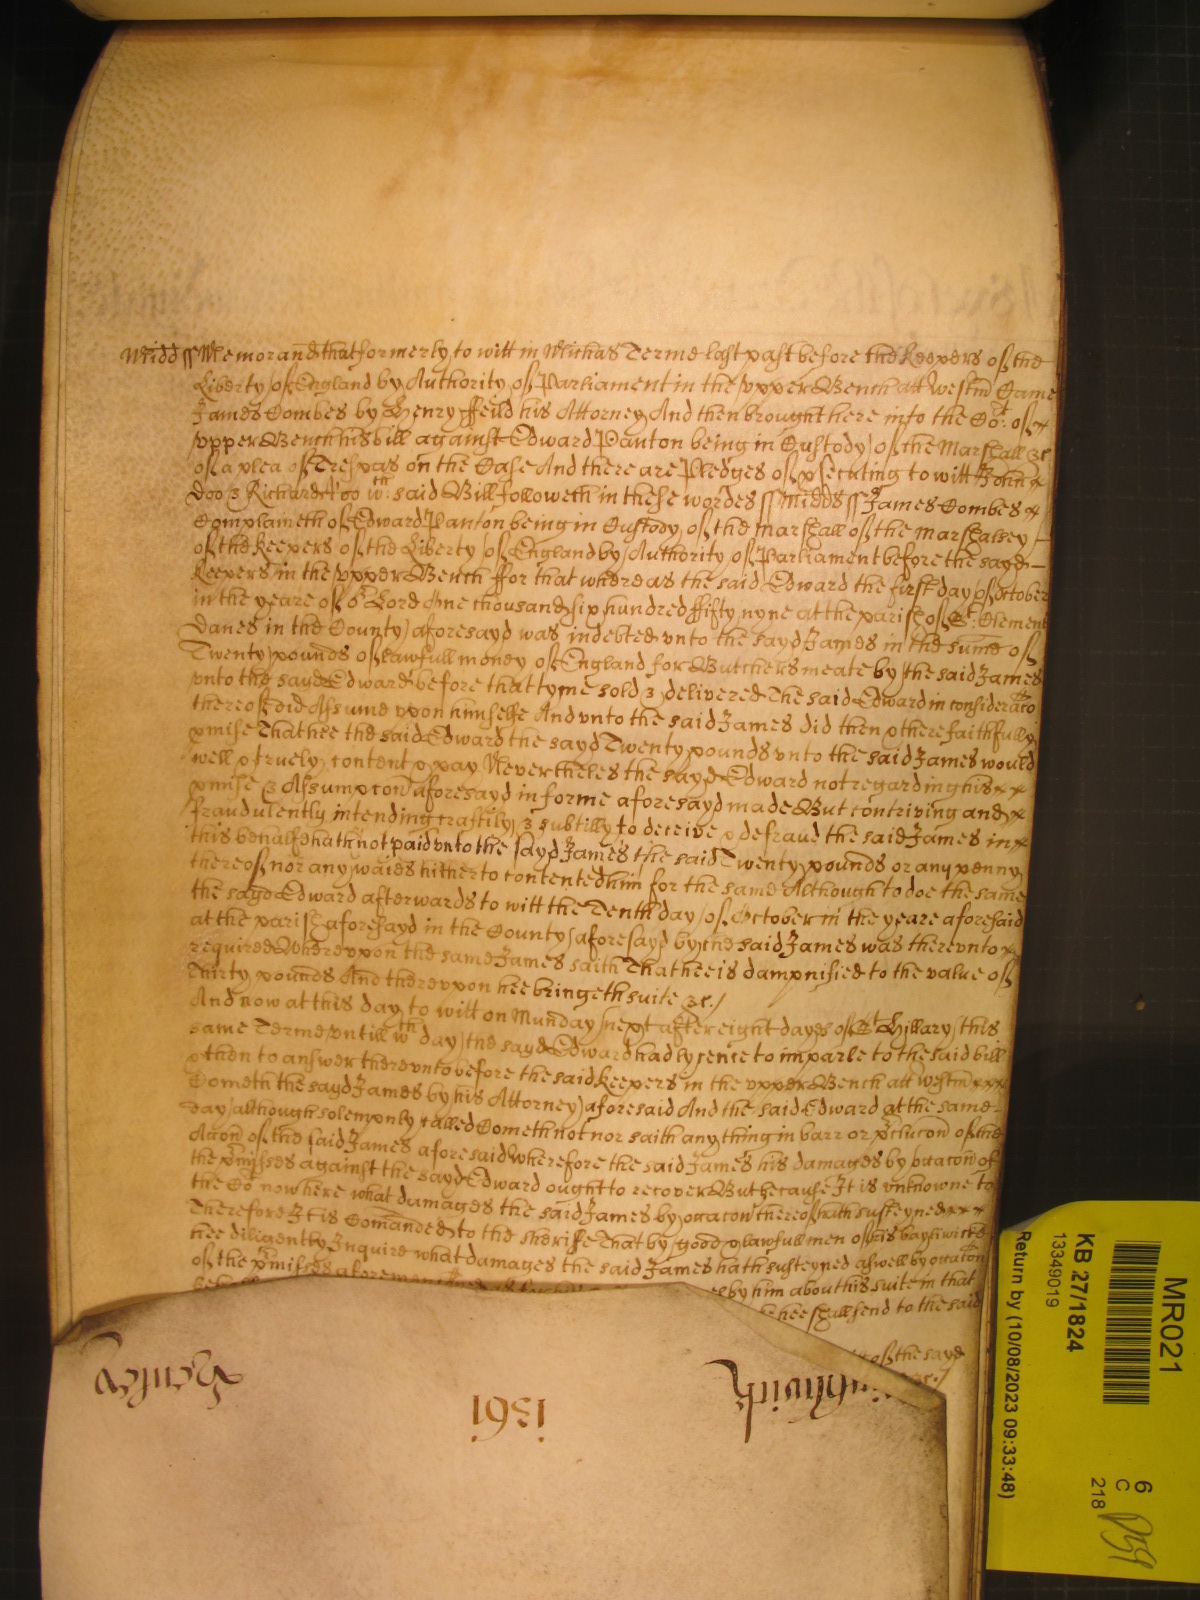 Midd ss Memorand that formerly to witt in Michas Terme last past before the Keepers of the
Liberty of England by Authority of Parliament in the upper Bench att Westm Came
James Combes by Henry ffeild his Attorney And then brought here into the Cot: of
upper Bench his bill against Edward Panton being in Custody of the Marshall &c
of a plea of Trespas on the Case And there are Pledges of psecuting to witt John
Doo & Richard Roo wch: said Bill followeth in these wordes ss Midds ss James Combes
Complaineth of Edward Panton being in Custody of the Marshall of the Marshalsey
of the Keepers of the Liberty of England by Authority of Parliament before the sayd
Keepers in the upper Bench ffor that whereas the said Edward the first day of October
in the yeare of or Lord One thousand six hundred ffifty nyne at the parish of St: Clement
Danes in the County aforesayd was indebted unto the sayd James in the sume of
Twenty pounds of lawfull money of England for Butchers meate by the said James
unto the sayd Edward before that tyme sold & delivered The said Edward in consideracon
thereof did Assume upon himselfe And unto the said James did then & there faithfully
pmise That hee the said Edward the sayd Twenty pounds unto the said James would
well & truely content & pay Nevertheles the sayd Edward not regarding his
pmise & Assumpcon aforesayd in forme aforesayd made But contriving and
fraudulently intending craftily & subtilly to deceive & defraud the said James in
this behalfe hath not paid unto the sayd James the said Twenty pounds or any penny
thereof nor any waies hitherto contented him for the same Although to doe the same
the sayd Edward afterwards to witt the Tenth day of October in the yeare aforesaid
at the parish aforesayd in the County aforesayd by the said James was thereunto
required Whereupon the same James saith That hee is dampnified to the value of
Thirty pounds And thereupon hee bringeth suite &c./
And now at this day to witt on Munday next after eight dayes of St Hillary this
same Terme untill wch day the sayd Edward had lycence to imparle to the said bill
& then to answer thereunto before the said Keepers in the upper Bench att Westm
Cometh the sayd James by his Attorney aforesaid And the said Edward at the same
day although solemnly called Cometh not nor saith any thing in barr or pclucon of the
Accon of the said James aforesaid Wherefore the said James his damages by occacon of
the pmisses against the sayd Edward ought to recover But because It is unknowne to
the Cot now here what damages the said James by occacon thereof hath susteyned
Therefore It is Comanded to the Sheriffe That by good & lawfull men of his bayliwicke
hee diligently Inquire what damages the said James hath susteyned aswell by occacon
of the pmisses aforemenconed as for his by him about his suite in that
hee shall send to the said
of the sayd
&c./
Henley
1361
MR021
KB 27/1824
13349019
Return by (10/08/2023 09:33:48)
6
C
218